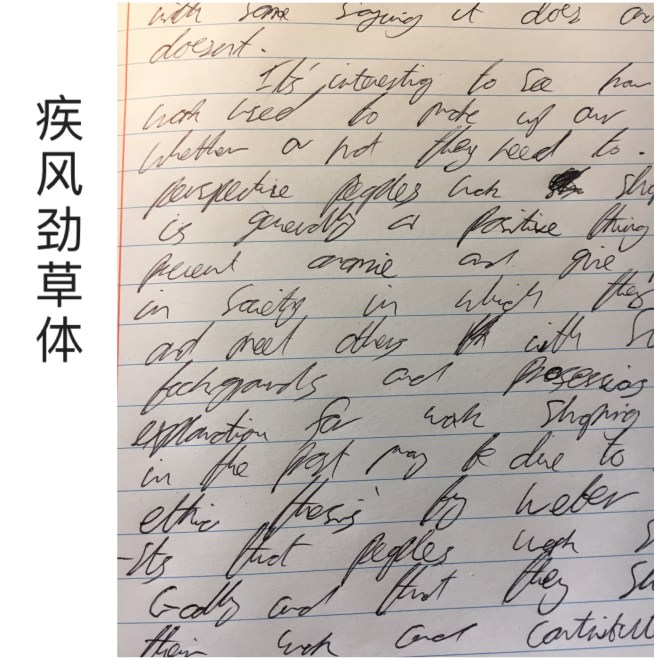 疾风劲草体
with some saying it does
doesnt.
Its interesting to see how
work used to make up our
whether or not they need to.
perspective peoples work
is generally a positive thing
prevent anomie and give
in society in which they
and meet others with
backgrounds and
explanation for work shaping
in the past may be due to
ethic thesis by Weber
Its that peoples work
Godly and that they
their work and